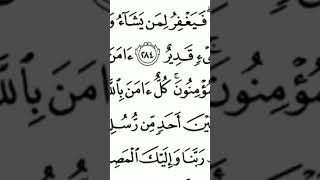 فَيَغْفِرُ لِمَن يَشَآءُ وَ
ىْءٍ قَدِيرٌ ٢٨٤ ءَامَنَ
مُؤْمِنُونَ ۚ كُلٌّ ءَامَنَ بِٱللَّ
يْنَ أَحَدٍ مِّن رُّسُلِ
رَبَّنَا وَإِلَيْكَ ٱلْمَصِ